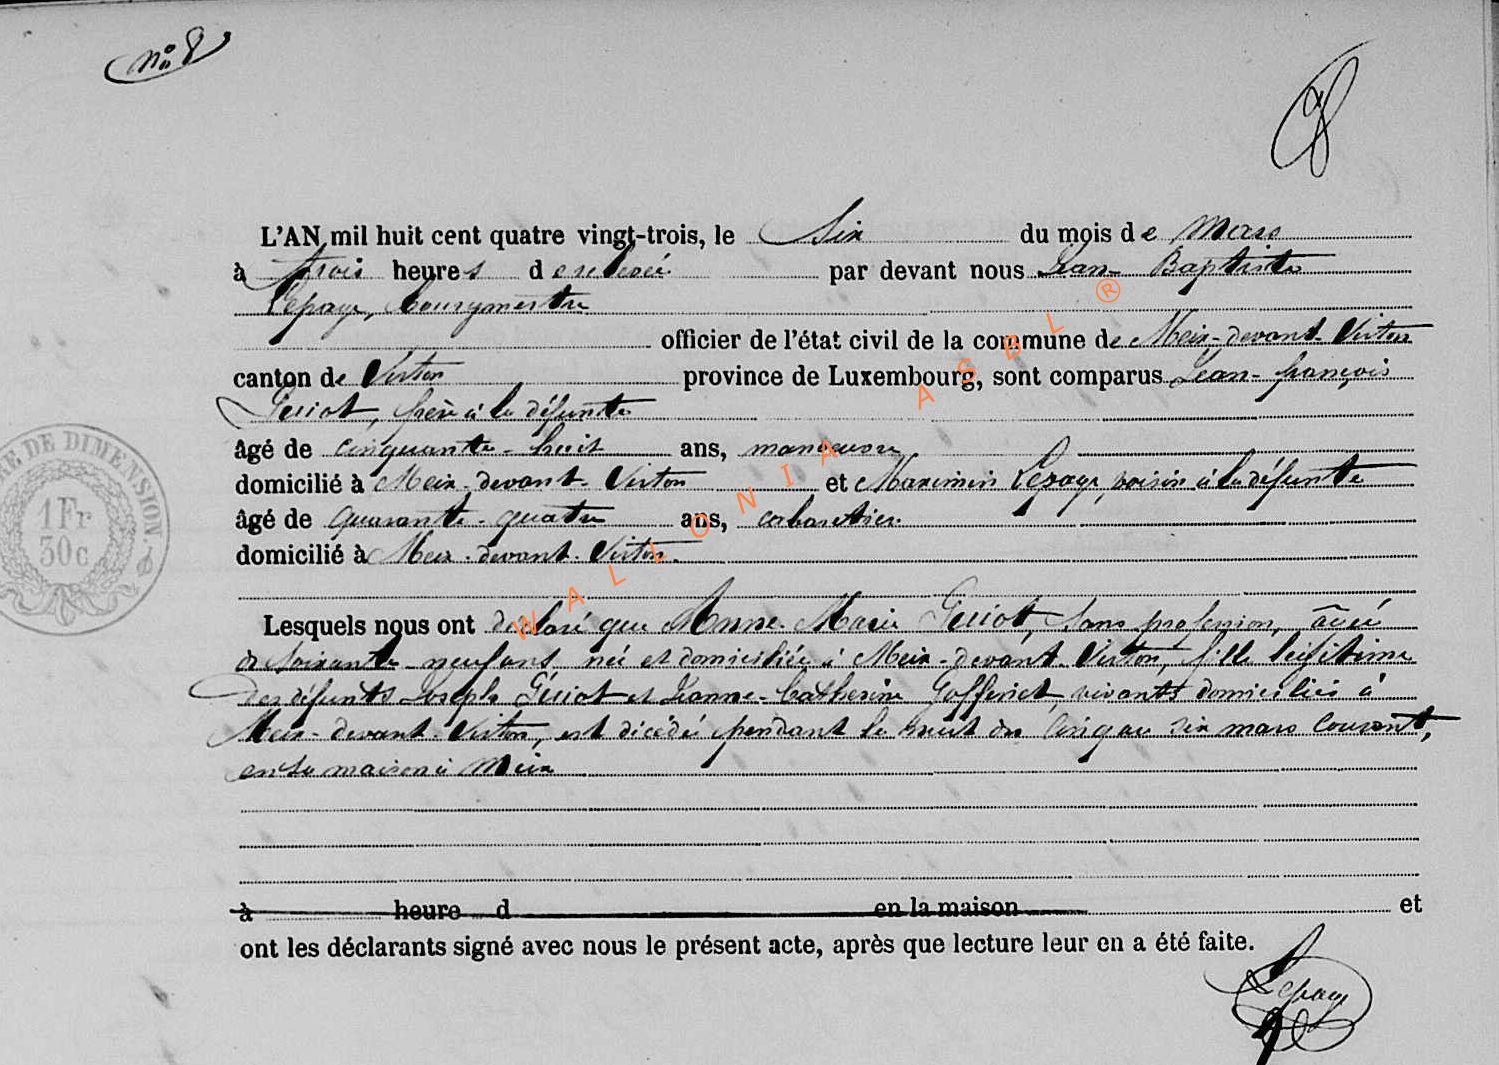 N° 8
L'AN mil huit cent quatre vingt-trois, le Six du mois de Mars
à trois heures de relevée par devant nous Jean-Baptiste
Lepage, bourgmestre
officier de l'état civil de la commune de Meix-devant-Virton
canton de Virton province de Luxembourg, sont comparus Jean-françois
Guiot, frère à la défunte
âgé de cinquante-huit ans, manœuvre
domicilié à Meix-devant-Virton et Maximin Lepage, voisin à la défunte
âgé de quarante-quatre ans, cabaretier
domicilié à Meix-devant-Virton.
Lesquels nous ont déclaré que Anne Marie Guiot, sans profession, âgée
de soixante-neuf ans, née et domiciliée à Meix-devant-Virton, fille légitime
des défunts Joseph Guiot et Jeanne-Catherine Goffinet, vivants domiciliés à
Meix-devant-Virton, est décédée pendant la nuit du cinq au six mars courant,
en sa maison à Meix
à heure d en la maison et
ont les déclarants signé avec nous le présent acte, après que lecture leur en a été faite.
Lepage
DE DIMENSION
1 Fr
30 c
WALLONIA ASBL ®